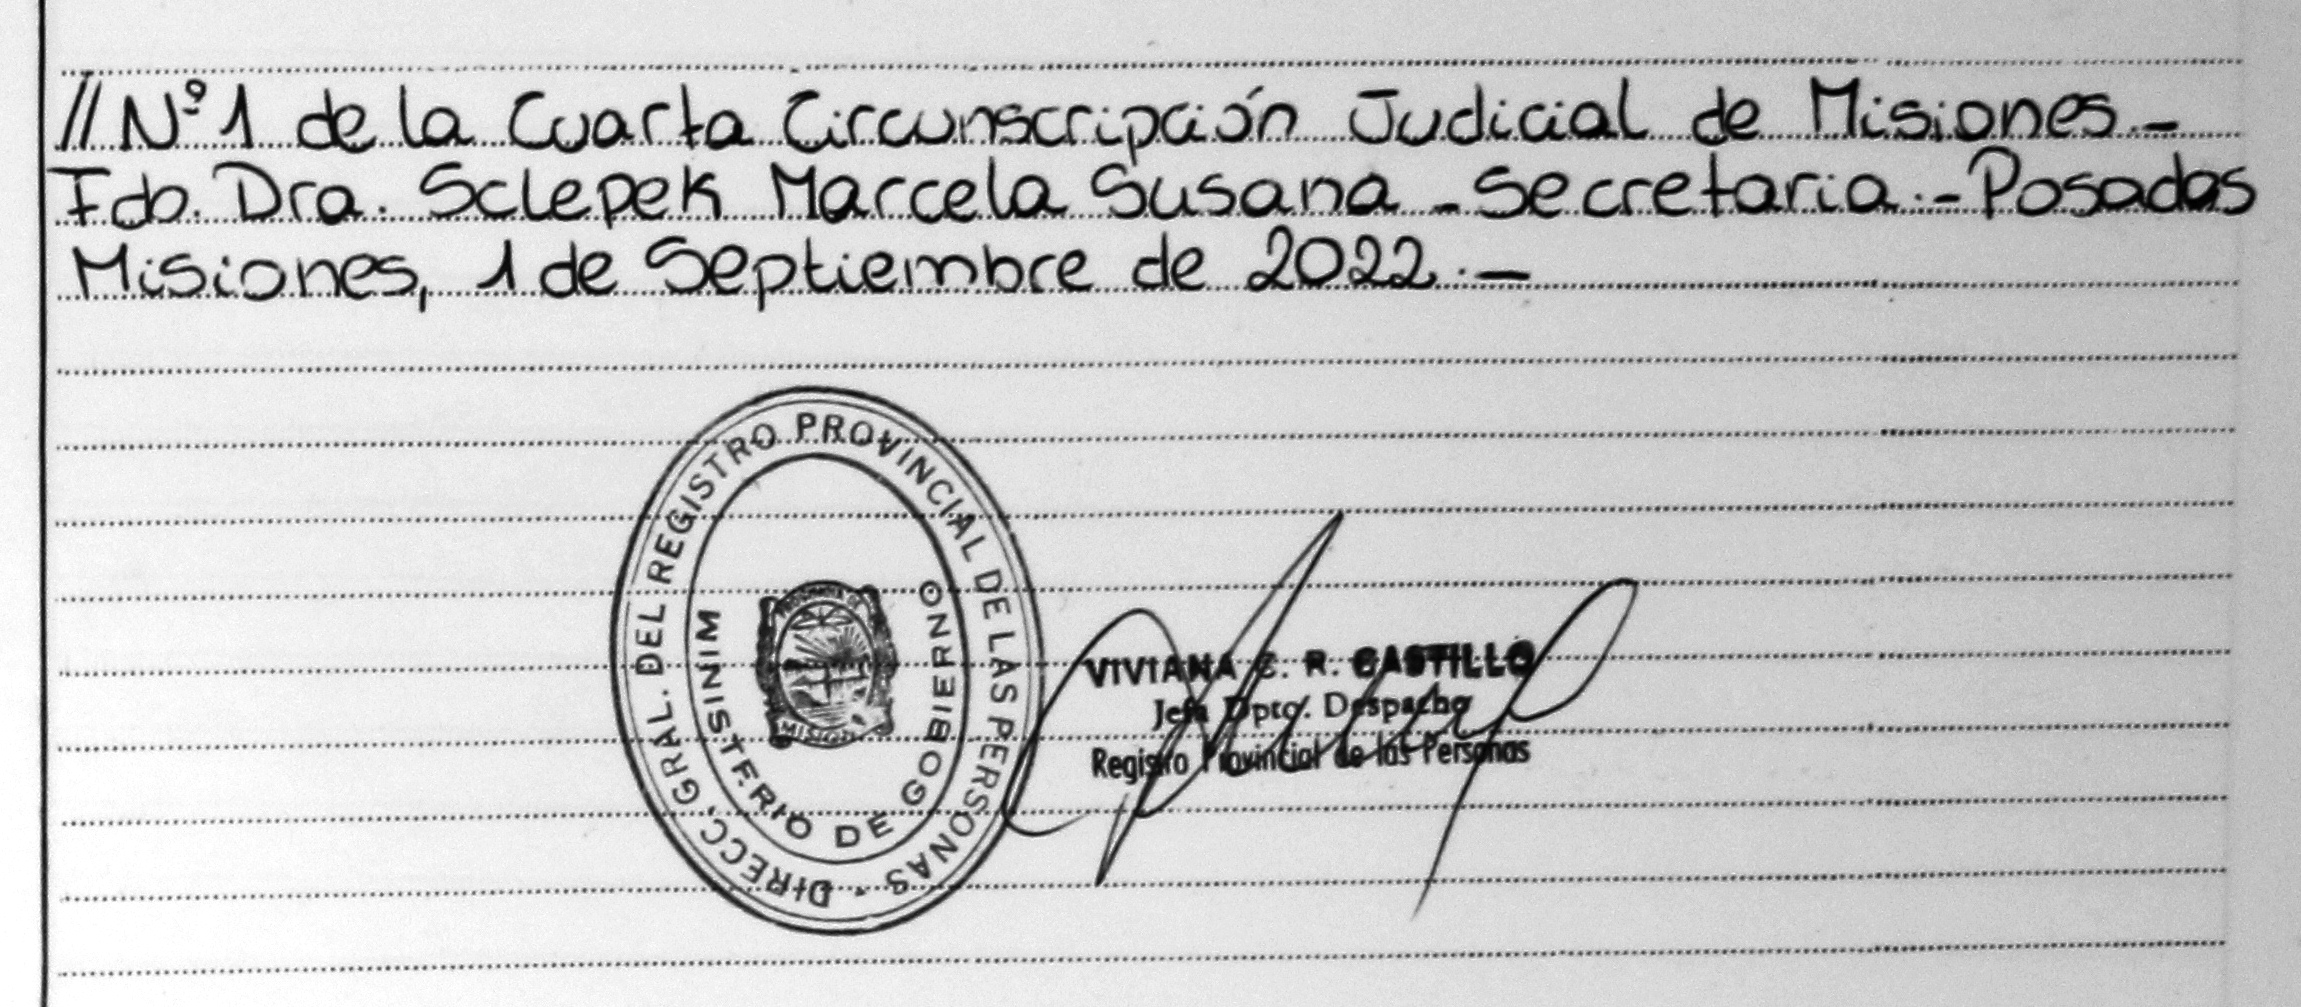 // Nº 1 de la Cuarta Circunscripción Judicial de Misiones.-
Fdo. Dra. Sclepek Marcela Susana - Secretaria.- Posadas
Misiones, 1 de Septiembre de 2022.-
DIRECC. GRAL. DEL REGISTRO PROVINCIAL DE LAS PERSONAS -
MINISTERIO DE GOBIERNO
VIVIANA C. R. CASTILLO
Jefa Dpto. Despacho
Registro Provincial de las Personas